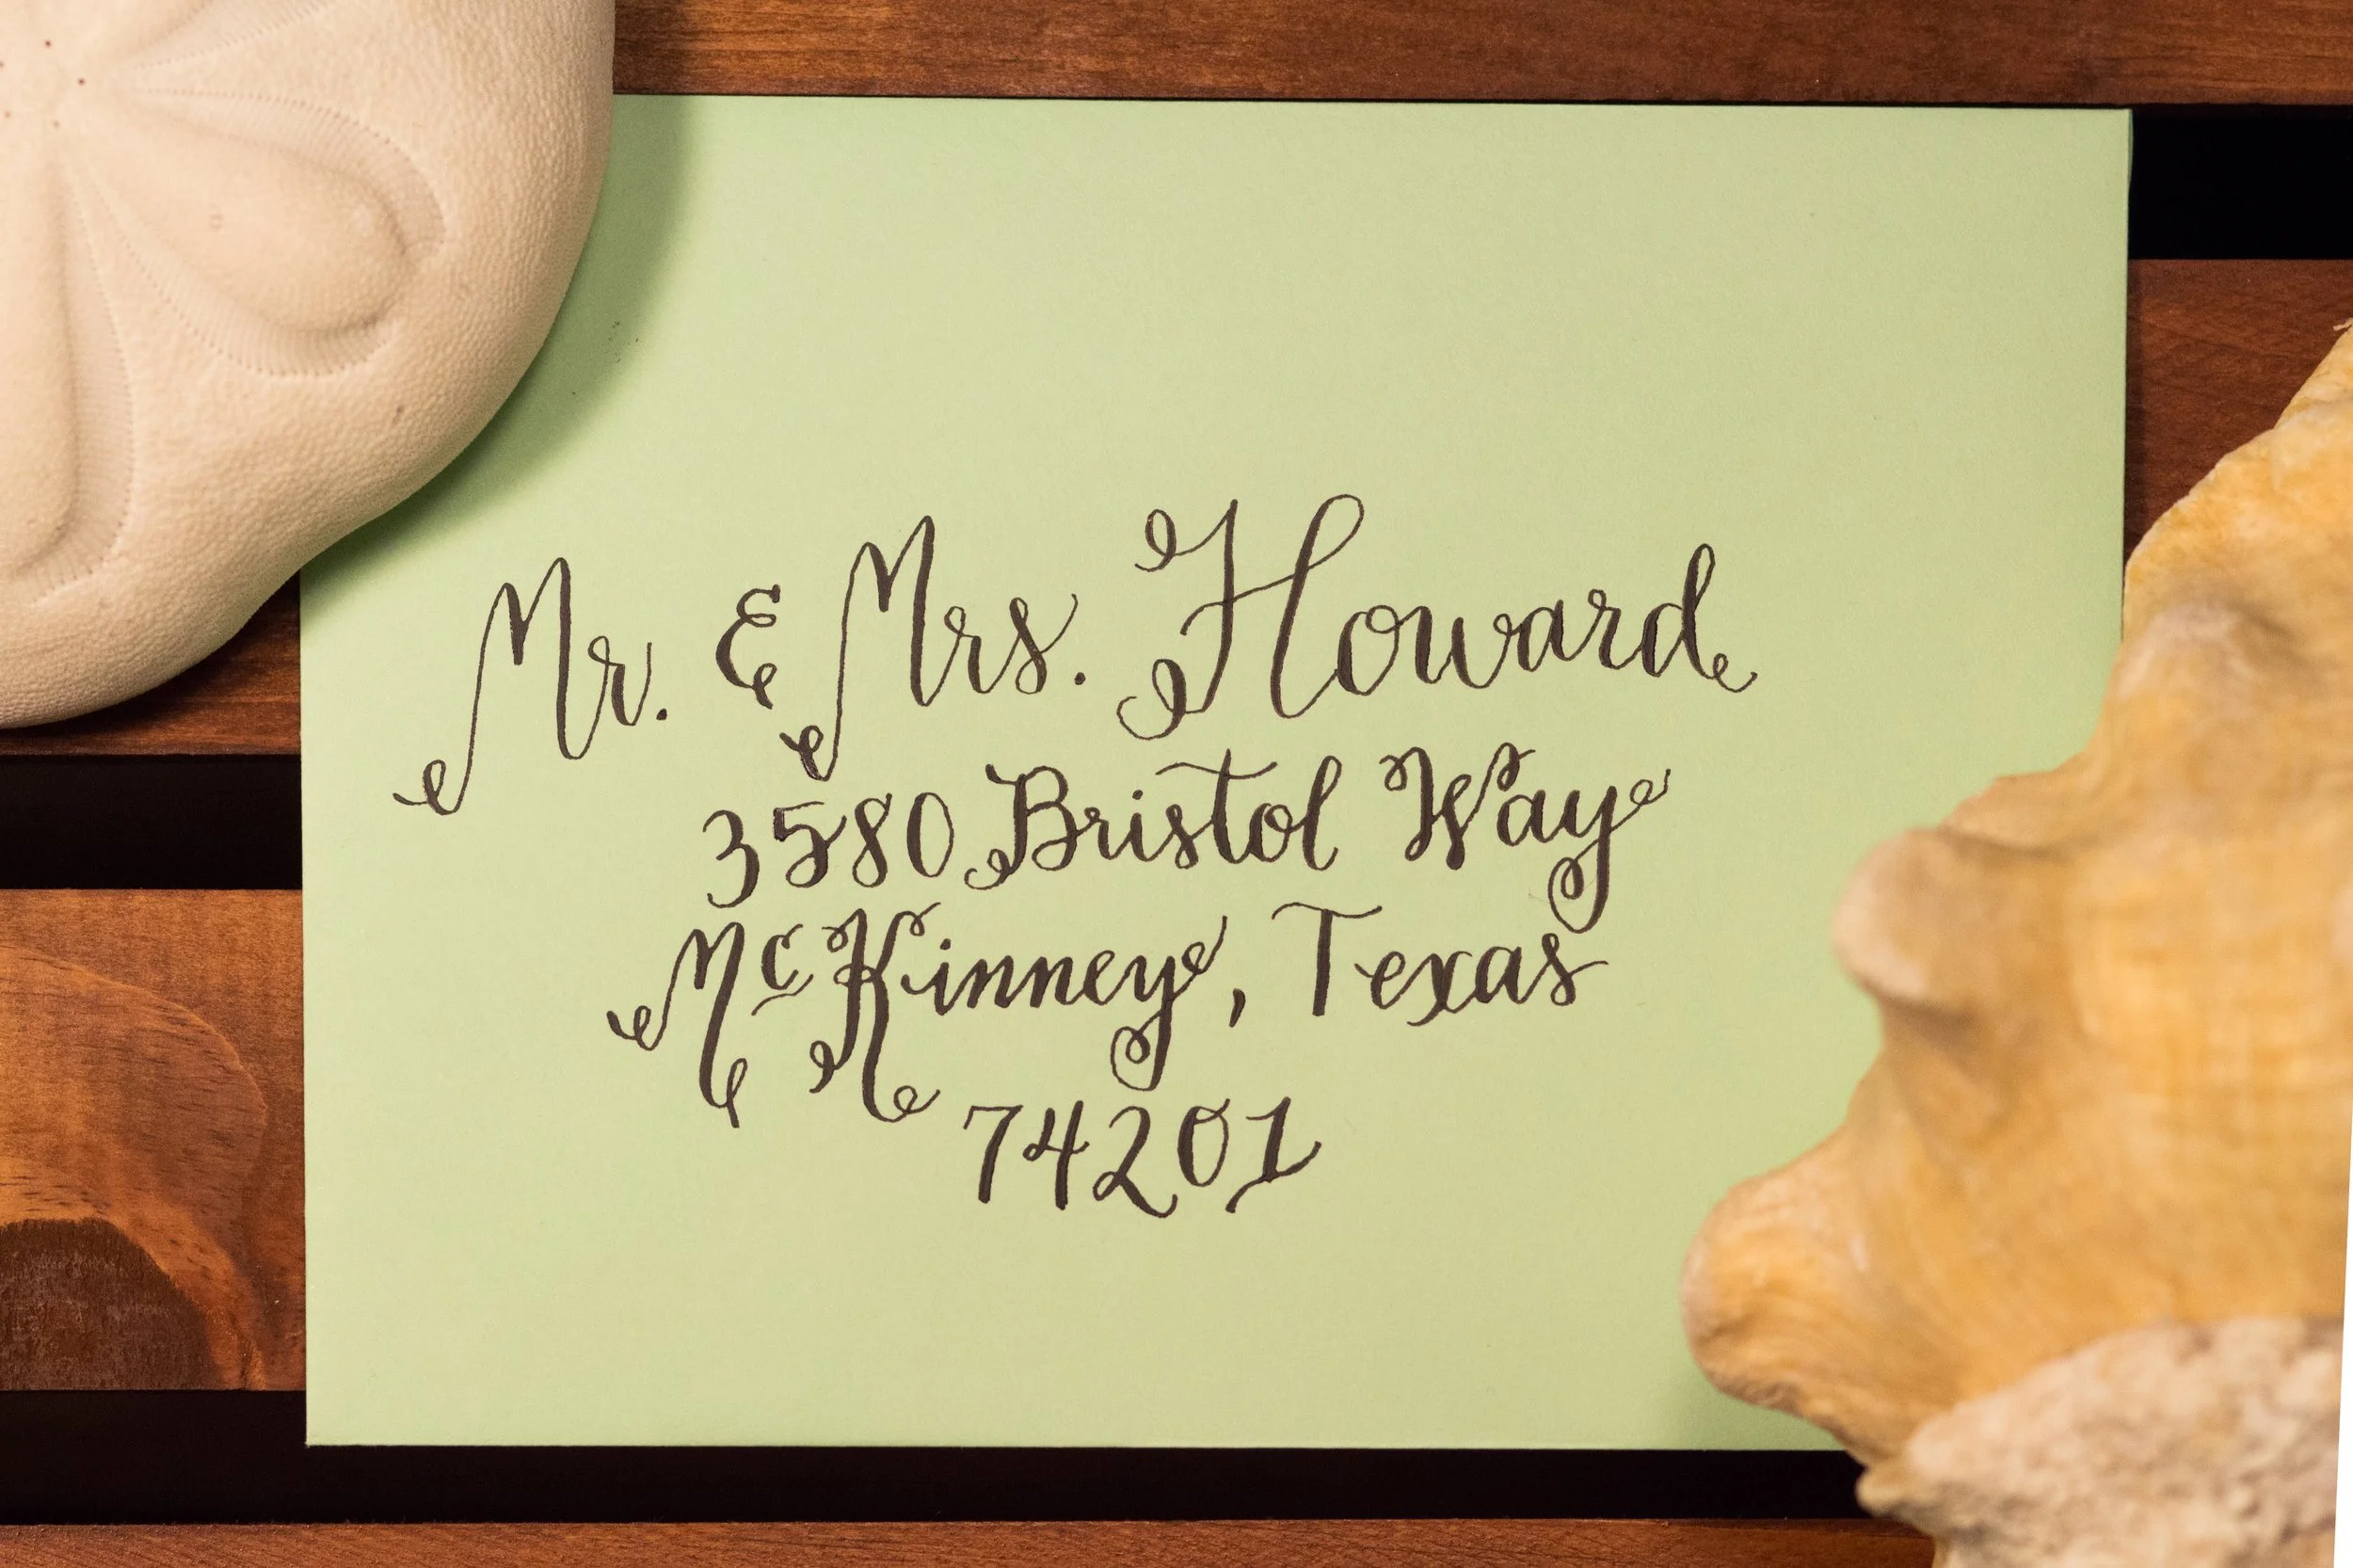 Mr. & Mrs. Howard
3580 Bristol Way
McKinney, Texas
74201